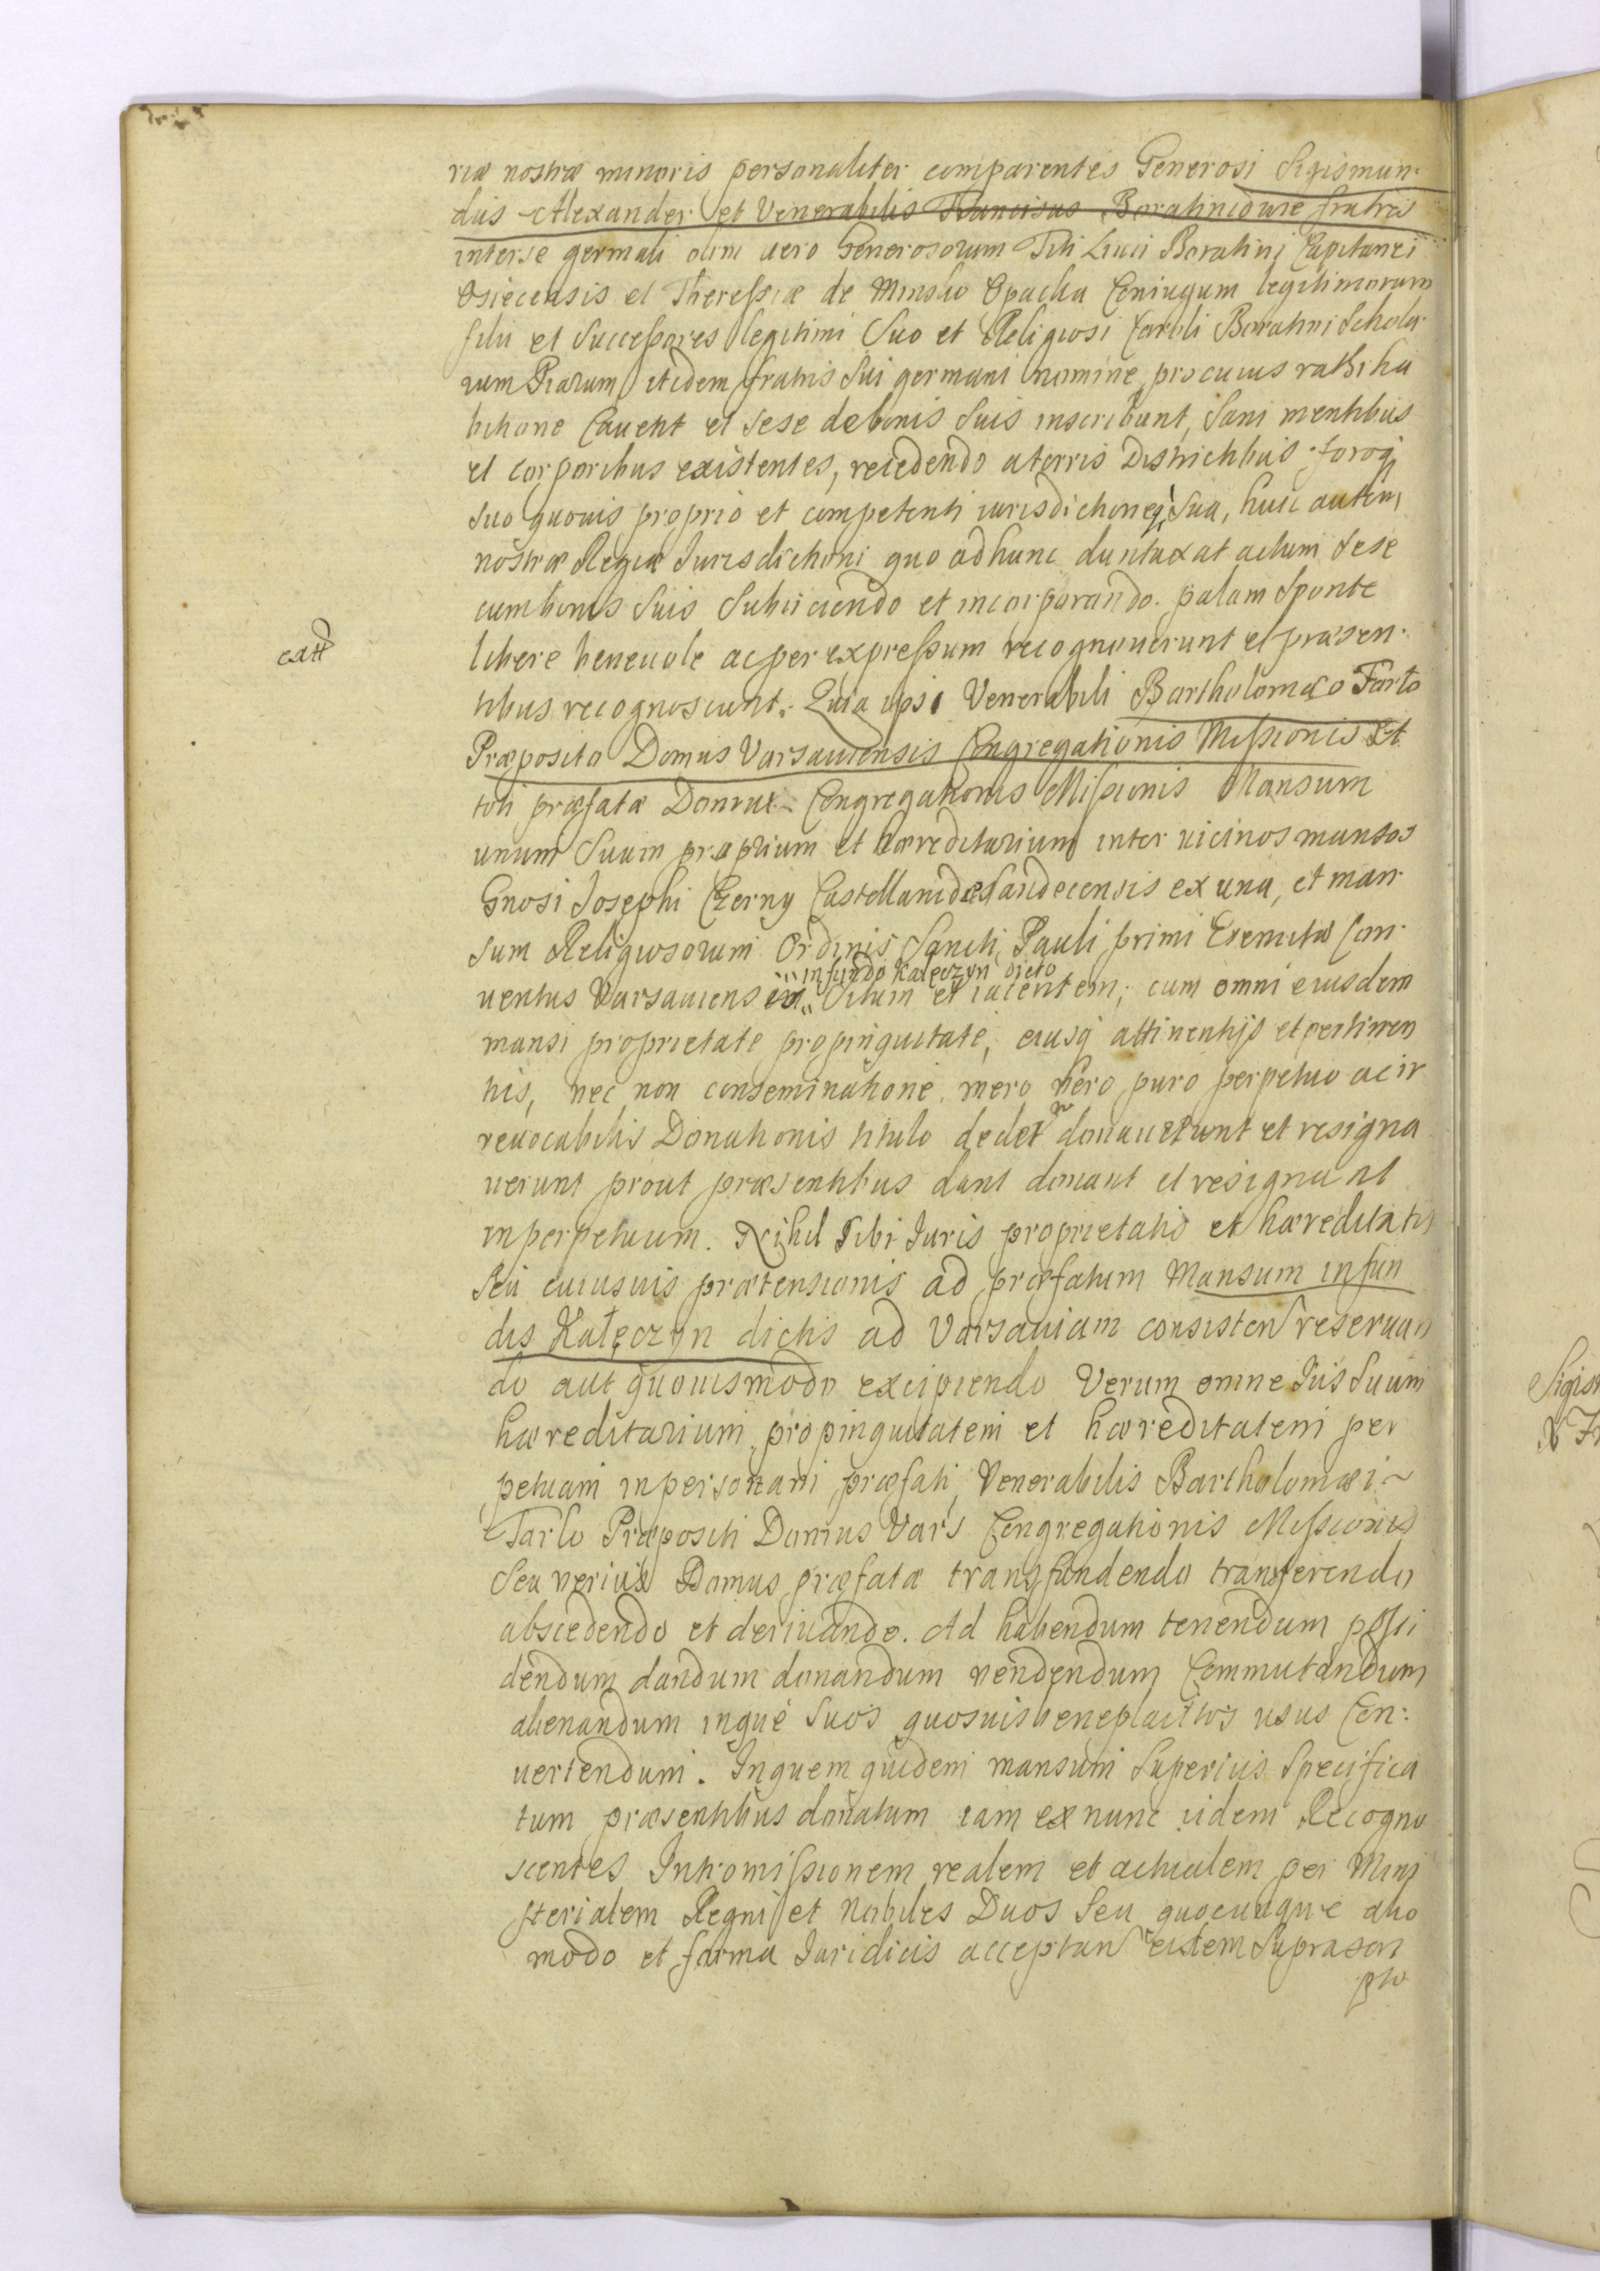 riæ nostræ minoris personaliter comparentes Generosi Sigismun-
dus Alexander et Venerabilis Franciscus Boratini fratres
interse germani olim uero Generosorum Titi Liuii Boratini Capitanei
Osiecensis et Theressiæ de Minsko Opacka Coniugum legitimorum
filii et Successores legitimi Suo et Religiosi Caroli Boratini Schola-
rum Piarum itidem fratris Sui germani nomine, pro cuius rathiha
bitione Cauent et sese debonis Suis inscribunt, Sani mentibus
et corporibus existentes, recedendo aterris Districtibus foroq;
Suo quouis proprio et competenti iurisdictioneq; Sua, huic autem
nostræ Regiæ Jurisdictioni quo adhunc duntaxat actum sese
cumbonis Suis Subiiciendo et incorporando. palam Sponte
libere beneuole acper expressum recognouerunt et præsen-
tibus recognoscunt. Quia ipsi Venerabili Bartholomæo Tarło
Præposito Domus Varsauiensis Congregationis Missionis Et
toti præfatæ Domui Congregationis Missionis Mansum
unum Suum proprium et hæreditarium inter uicinos mansos
Gnosi Josephi Czerny Castellani Sandecensis ex una, et man-
sum Religiosorum Ordinis Sancti Pauli primi Eremitæ Con-
uentus Varsauiens
infundo Kałęczyn dicto
Situm et iacentem; cum omni eiusdem
mansi proprietate propinquitate, eiusq; attinentijs et pertinen
tiis, nec non conseminatione. mero uero puro perpetuo acir
reuocabilis Donationis titulo deder donauerunt et resigna
uerunt prout præsentibus dant donant et resignant
inperpetuum. Nihil Sibi Juris proprietatis et hæreditatis
Seu cuiusuis prætensionis ad præfatum Mansum infun
dis Kałęczyn dictis ad Varsauiam consisten reseruan
do aut quouismodo excipiendo Verum omne Jus Suum
hæreditarium, propinquitatem et hæreditatem per
petuam inpersonam præfati Venerabilis Bartholomæi
Tarło Præpositi Domus Vars Congregationis Missionis
Seu uerius Domus præfatæ transfundendo transferendo
abscedendo et deriuando. Ad habendum tenendum possi
dendum dandum donandum uendendum Commutandum
alienandum inque Suos quosuis beneplacitos usus Con-
uertendum. Inquem quidem mansum Superius Specifica
tum præsentibus donatum iam ex nunc iidem Recogno
scentes Intromissionem realem et actualem per Mini
sterialem Regni et Nobiles Duos Seu quocunque alio
modo et forma Juridicis acceptan eidem Suprascri
pto